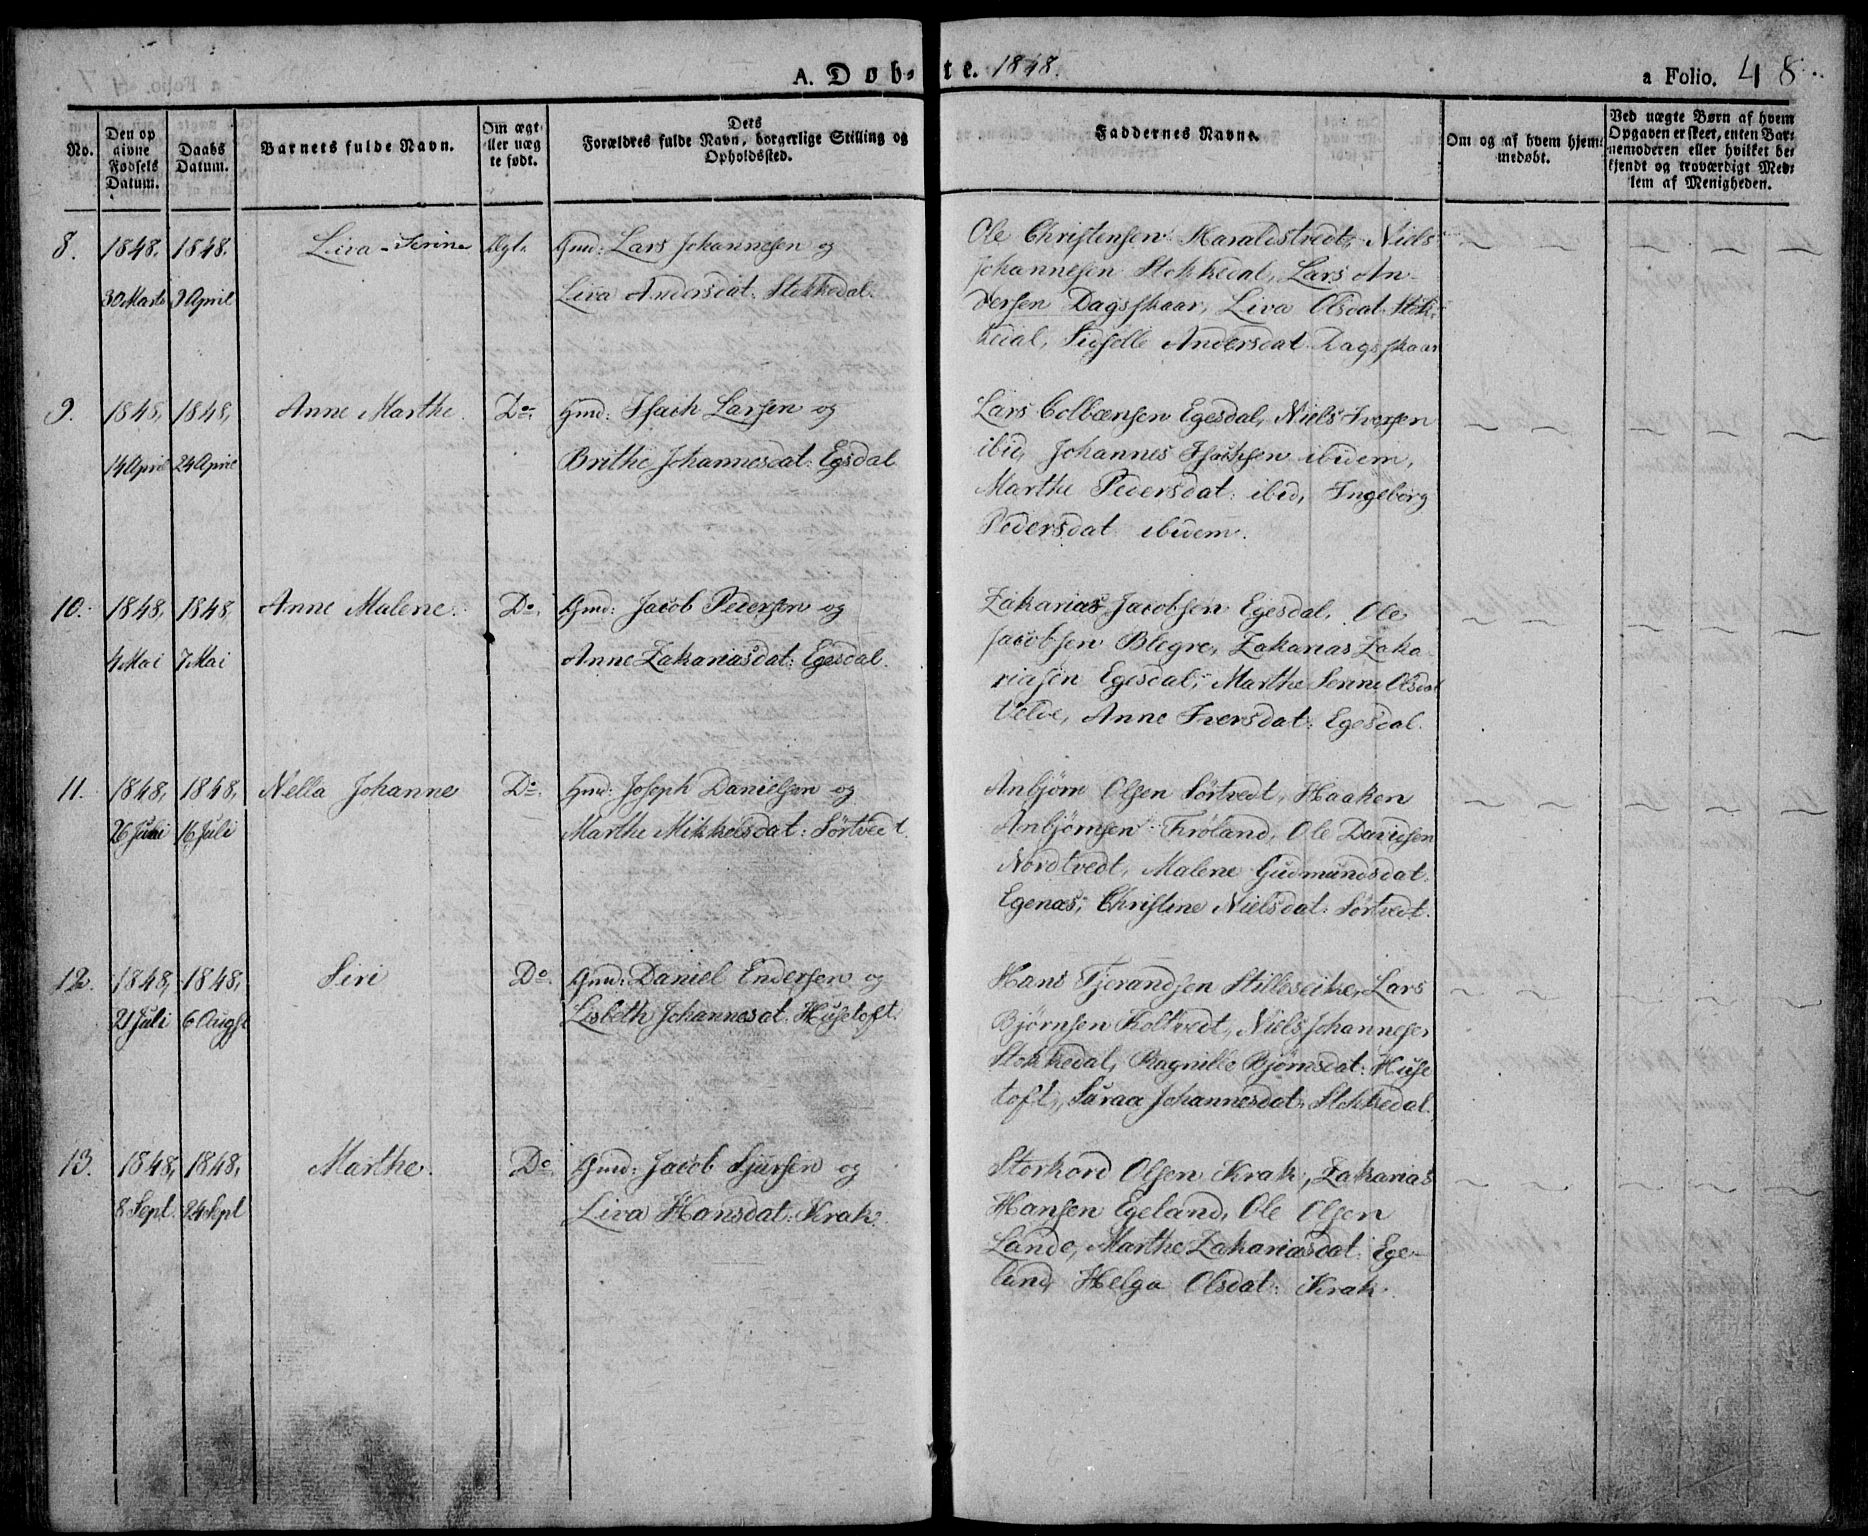 A. Døb- te. 1848. a Folio. 48.
No.
Den op
givne
Fødsels
Datum.
Daabs
Datum.
Barnets fulde Navn.
Om ægt
eller uæg
te født.
Dets
Forældres fulde Navn, borgerlige Stilling og
Opholdssted.
Faddernes Navne.
Om og af hvem hjem:
medøbt.
Ved uægte Børn af hvem
Opgaven er skeet, enten Bar:
nemoderen eller hvilket be
kjendt og troværdigt Med:
lem af Menigheden.
8. 1848. 1848. Liva Serine Ægt. Gmd: Lars Johannesen og
30 Marts 9 April Liva Andersdat: Stokkedal.
Ole Christensen Haraldstvedt, Niels
Johannesen Stokkedal, Lars An-
dersen Dagsskaar, Liva Olsdat Stok-
kedal, Sidselle Andersdat Dagsskaar
9. 1848, 1848, Anne Marthe. Do. Gmd: Isach Larsen og
14 April 24 April Brithe Johannesdat: Egsdal
Lars Colbensen Egesdal, Niels Iversen
ibid, Johannes Isachsen ibidem,
Marthe Pedersdat: ibid, Ingeborg
Pedersdat ibidem.
10. 1848, 1848 Anne Malene. Do. Gmd: Jacob Pedersen og
4 Mai 7 Mai Anne Zakariasdat: Egesdal.
Zakarias Jacobsen Egesdal, Ole
Jacobsen Blegre, Zakarias Zaka
riasen Egesdal, Marthe Serine Olsdat
Velde, Anne Iversdat: Egesdal.
11. 1848, 1848, Nella Johanne Do. Gmd: Joseph Danielsen og
26 Juni 16 Juli Marthe Mikkelsdat: Sörtvedt.
Anbjörn Olsen Sörtvedt, Haaken
Anbjörnsen Fröland, Ole Davidsen
Nordtvedt, Malene Gudmundsdat.
Egenæs, Christine Nielsdat: Sörtvedt.
12. 1848, 1848, Siri Do. Gmd: Daniel Endersen og
21 Juli 6 Augst Lisbeth Johannesdat: Husetoft.
Hans Tjerandsen Stilleseike, Lars
Bjørnsen Koltvedt, Niels Johannesen
Stokkedal, Ragnille Bjørnsdat: Huse
toft, Saraa Johannesdat, Stokkedal.
13. 1848, 1848, Marthe. Do. Gmd: Jacob Sjursen og
8 Sept. 24 Sept Liva Hansdat: Krak.
Storkord Olsen Krak, Zakarias
Hansen Egeland, Ole Olsen
Lande, Marthe Zakariasdat: Ege-
land, Helga Olsdat: Krak.